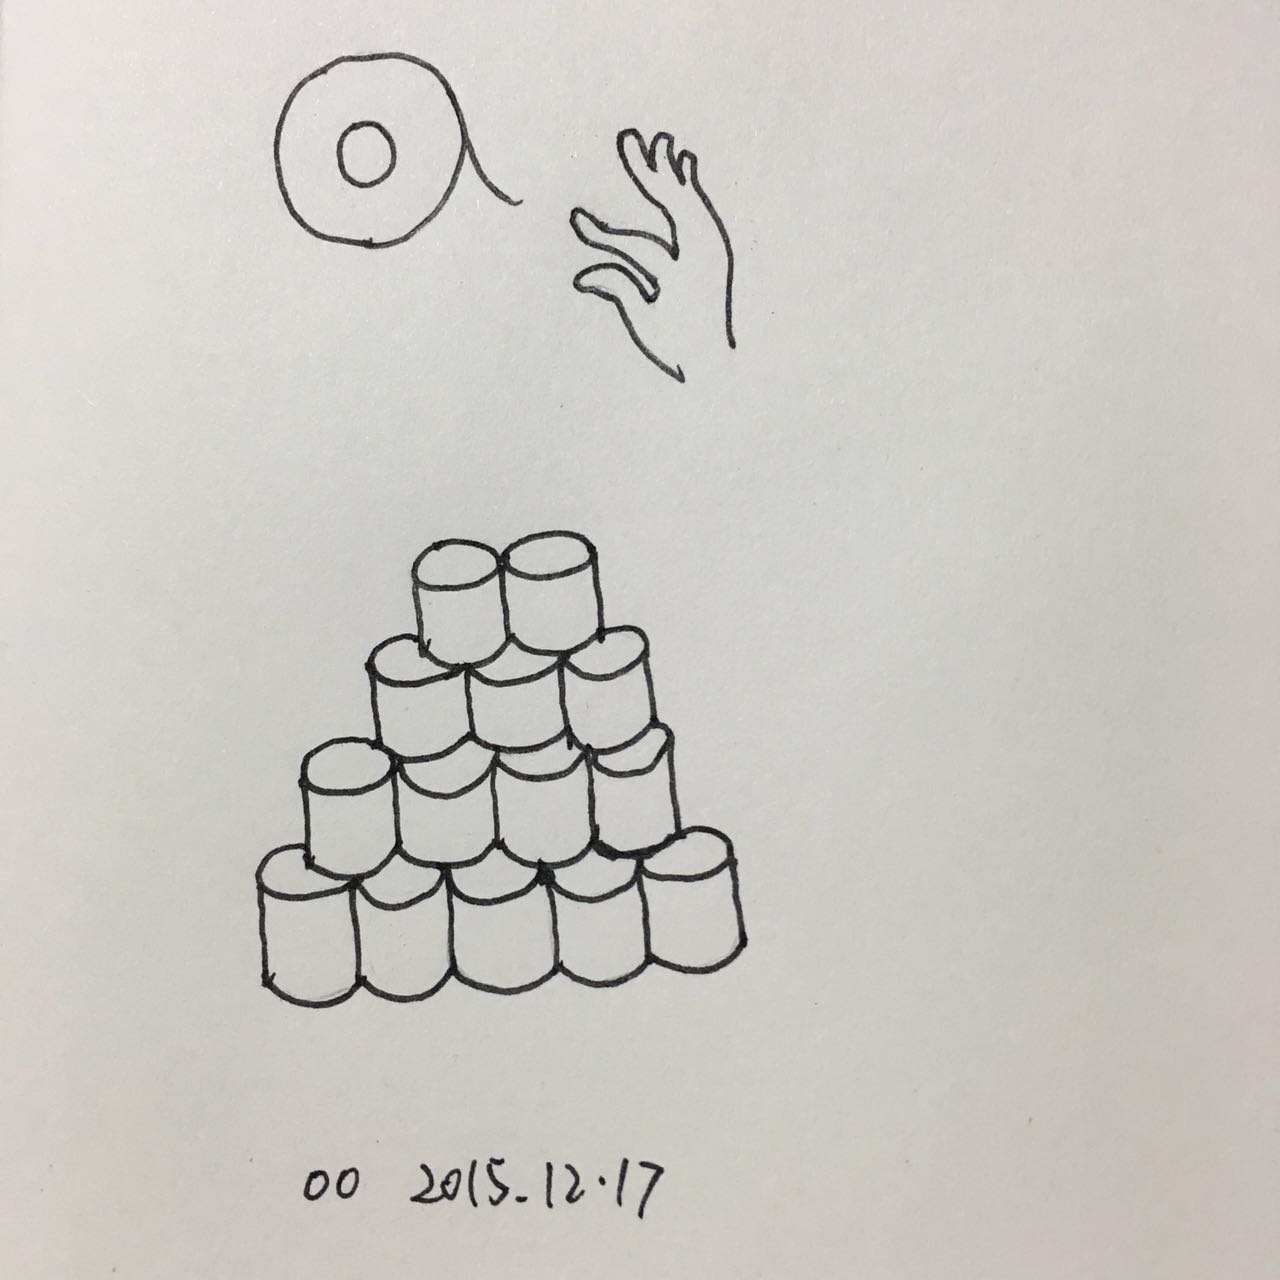 00 2015.12.17